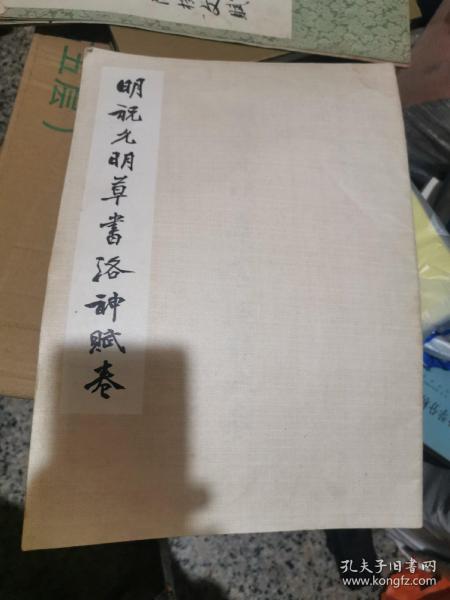 明祝允明草書洛神賦卷
五层）
文賦
孔夫子旧书网
www.kongfz.com